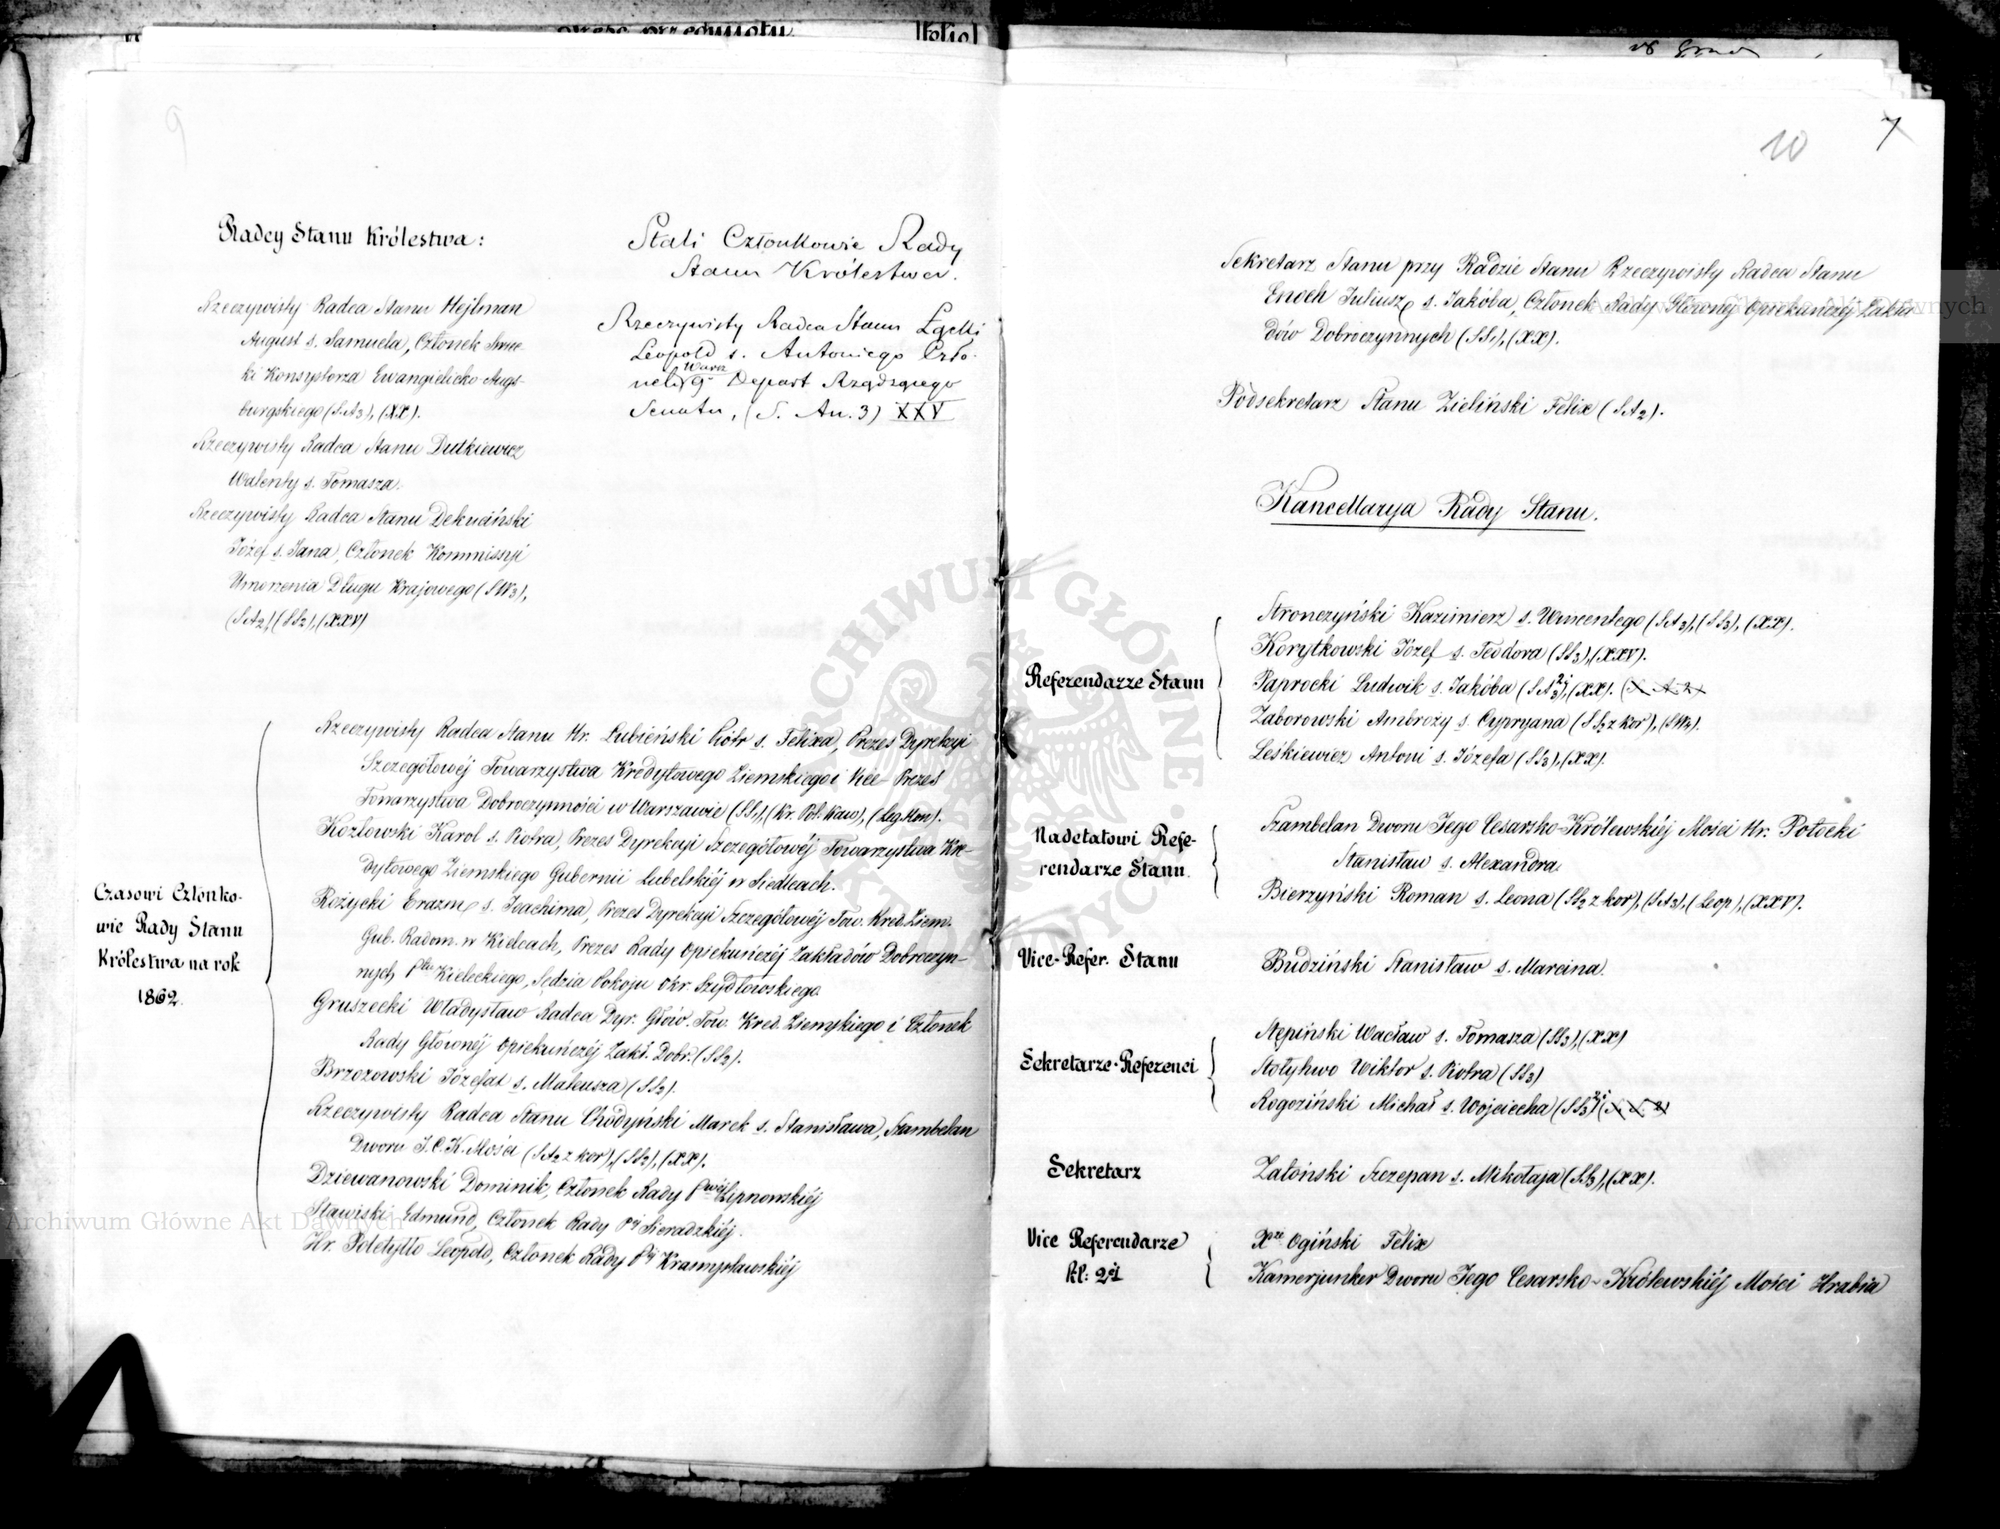 9
Radcy Stanu Królestwa:
Rzeczywisty Radca Stanu Hejlman
August s. Samuela, Członek
ki Konsystorza Ewangielicko Augs-
burgskiego (S.A3), (XX).
Rzeczywisty Radca Stanu Dutkiewicz
Walenty s. Tomasza.
Rzeczywisty Radca Stanu Dekuciński
Józef s. Jana, Członek Kommissyi
Umorzenia Długu Krajowego (SW3),
(SA2), (SS2), (XXV)
Stali Członkowie Rady
Stanu Królestwa.
Rzeczywisty Radca Stanu
Leopold s. Antoniego Czło-
nek 9 Warsz Depart Rządzącego
Senatu, (S. An. 3) XXV
Czasowi Członko-
wie Rady Stanu
Królestwa na rok
1862.
Rzeczywisty Radca Stanu Hr. Łubieński Piótr s. Felixa, Prezes Dyrekcyi
Szczegółowéj Towarzystwa Kredytowego Ziemskiego i Vice-Prezes
Towarzystwa Dobroczynności w Warszawie (SS1), (Kr. Pol. Kaw), (Leg. Hon).
Kozłowski Karol s. Piotra, Prezes Dyrekcyi Szczegółowéj Towarzystwa Kre-
dytowego Ziemskiego Gubernii Lubelskiéj w Siedlcach.
Rożycki Erazm s. Joachima, Prezes Dyrekcyi Szczegółowéj Tow. Kred. Ziem.
Gub. Radom. w Kielcach, Prezes Rady Opiekuńczéj Zakładów Dobroczyn-
nych Ptu Kieleckiego, Sędzia Pokoju Okr. Szydłowskiego.
Gruszecki Władysław Radca Dyr. Głów. Tow. Kred. Ziemskiego i Członek
Rady Głównéj Opiekuńczéj Zakł. Dobr. (SS2).
Brzozowski Józefat s. Mateusza (SS2).
Rzeczywisty Radca Stanu Chodyński Marek s. Stanisława, Szambelan
Dworu J.C.K. Mości (SA2 z kor), (SS2), (XX).
Dziewanowski Dominik, Członek Rady Pwéj Lipnowskiéj
Stawiski Edmund, Członek Rady Péj Sieradzkiéj.
Hr. Poletyłło Leopold, Członek Rady Péj Krasnystawskiéj
10
7
Sekretarz Stanu przy Radzie Stanu Rzeczywisty Radca Stanu
Enoch Juliusz s. Jakóba, Członek Rady Głównéj Opiekuńczéj Zakła-
dów Dobroczynnych (SS1), (XX).
Podsekretarz Stanu Zieliński Felix (SA2).
Kancellarya Rady Stanu.
Referendarze Stanu
Stronczyński Kazimierz s. Wincentego (SA2), (SS3), (XX).
Korytkowski Józef s. Teodora (SS3), (XXV).
Paprocki Ludwik s. Jakóba (SA3), (XX). (S. A. 2)
Zaborowski Ambroży s. Cypryana (SS2 z kor), (SW4).
Leśkiewicz Antoni s. Józefa (SS3), (XX).
Nadetatowi Refe-
rendarze Stanu.
Szambelan Dworu Jego Cesarsko-Królewskiéj Mości Hr. Potocki
Stanisław s. Alexandra.
Bierzyński Roman s. Leona (SS2 z kor), (SA3), (Leop), (XXV).
Vice-Refer. Stanu
Budziński Stanisław s. Marcina.
Sekretarze-Referenci
Stępiński Wacław s. Tomasza (SS3), (XX)
Stołyhwo Wiktor s. Piotra (SS3)
Rogoziński Michał s. Wojciecha (SS3)
Sekretarz
Zatoński Szczepan s. Mikołaja (SS3), (XX).
Vice Referendarze
kl: 2éj
Xże Ogiński Felix
Kamerjunker Dworu Jego Cesarsko-Królewskiéj Mości Hrabia
Archiwum Główne Akt Dawnych
Archiwum Główne Akt Dawnych
ARCHIWUM GŁÓWNE AKT DAWNYCH